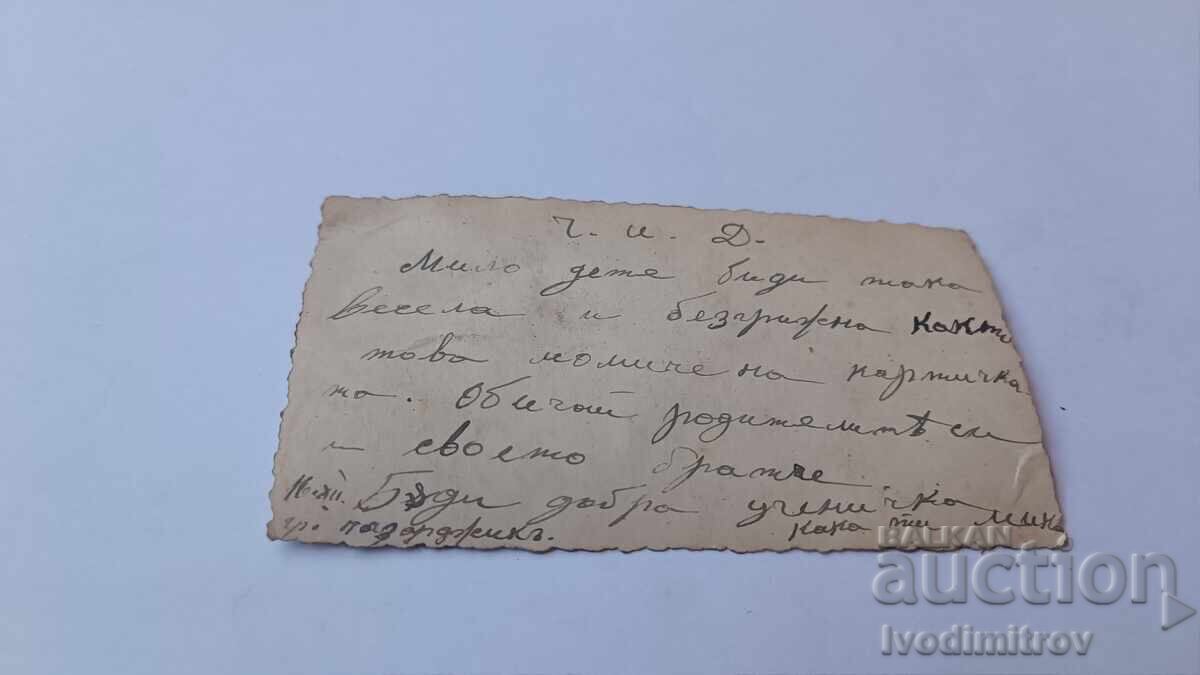 Ч. и. Д.
Мило дете биди така
весела и безгрижна както
това момиче на картичка
та. Обичай родителитѣ си
и своето братче.
16.XII. Бѫди добра ученичка
гр. Пазарджикъ. кака ти Мика
BALKAN
auction
Ivodimitrov